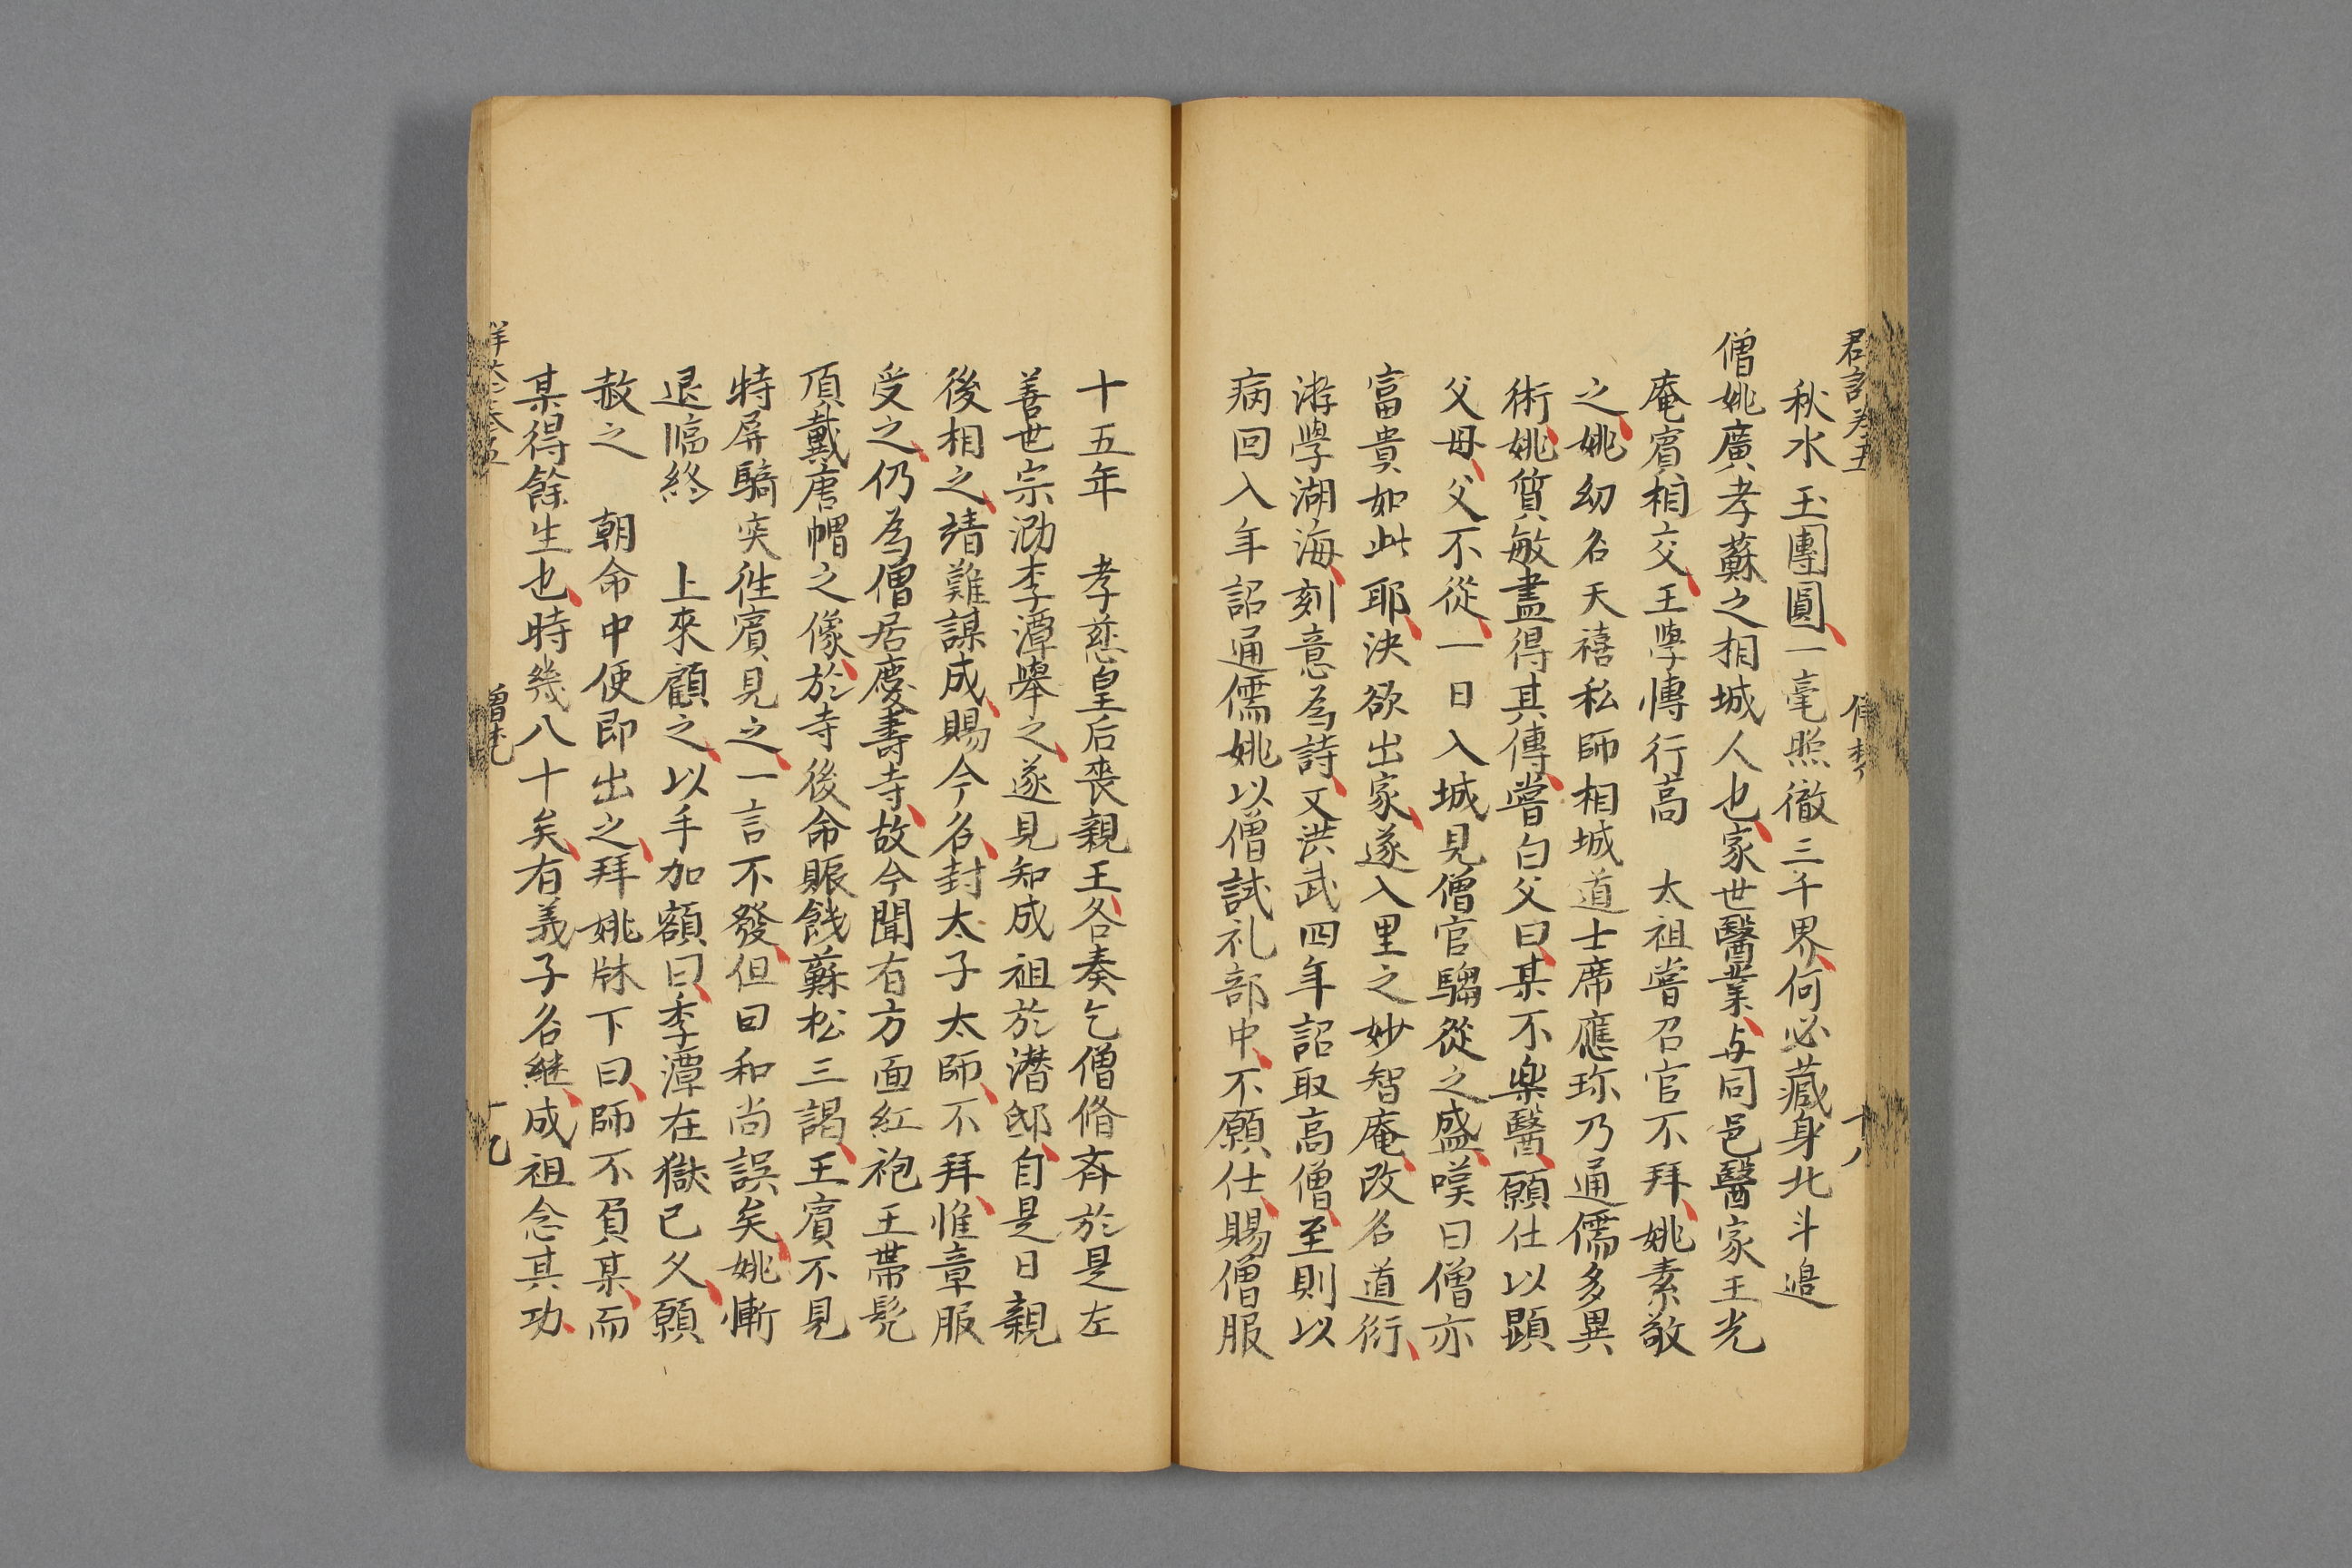 秋水玉團圓一毫照徹三千界何必藏身北斗邉
僧姚廣孝蘇之相城人也家世醫業与同邑醫家王光
庵賓相交王學博行高　太祖嘗召官不拜姚素敬
之姚幼名天禧私師相城道士席應珎乃通儒多異
術姚質敏盡得其傳嘗白父曰某不樂醫願仕以顕
父母父不從一日入城見僧官騶從之盛嘆曰僧亦
富貴如此耶決欲出家遂入里之妙智庵改名道衍
游學湖海刻意為詩文洪武四年詔取高僧至則以
病回入年詔通儒姚以僧試礼部中不願仕賜僧服
十五年　孝慈皇后喪親王各奏乞僧脩斉於是左
善世宗泐李潭舉之遂見知成祖於潛邸自是日親
後相之靖難謀成賜今名封太子太師不拜惟章服
受之仍為僧居慶壽寺故今聞有方面紅袍玉帶髡
頂戴唐帽之像於寺後命賑餞蘇松三謁王賓不見
特屏騎突徃賓見之一言不發但曰和尚誤矣姚慚
退臨終　上來顧之以手加額曰季潭在獄已久願
赦之　朝命中使即出之拜姚牀下曰師不負某而
某得餘生也時幾八十矣有義子名継成祖念其功
十九